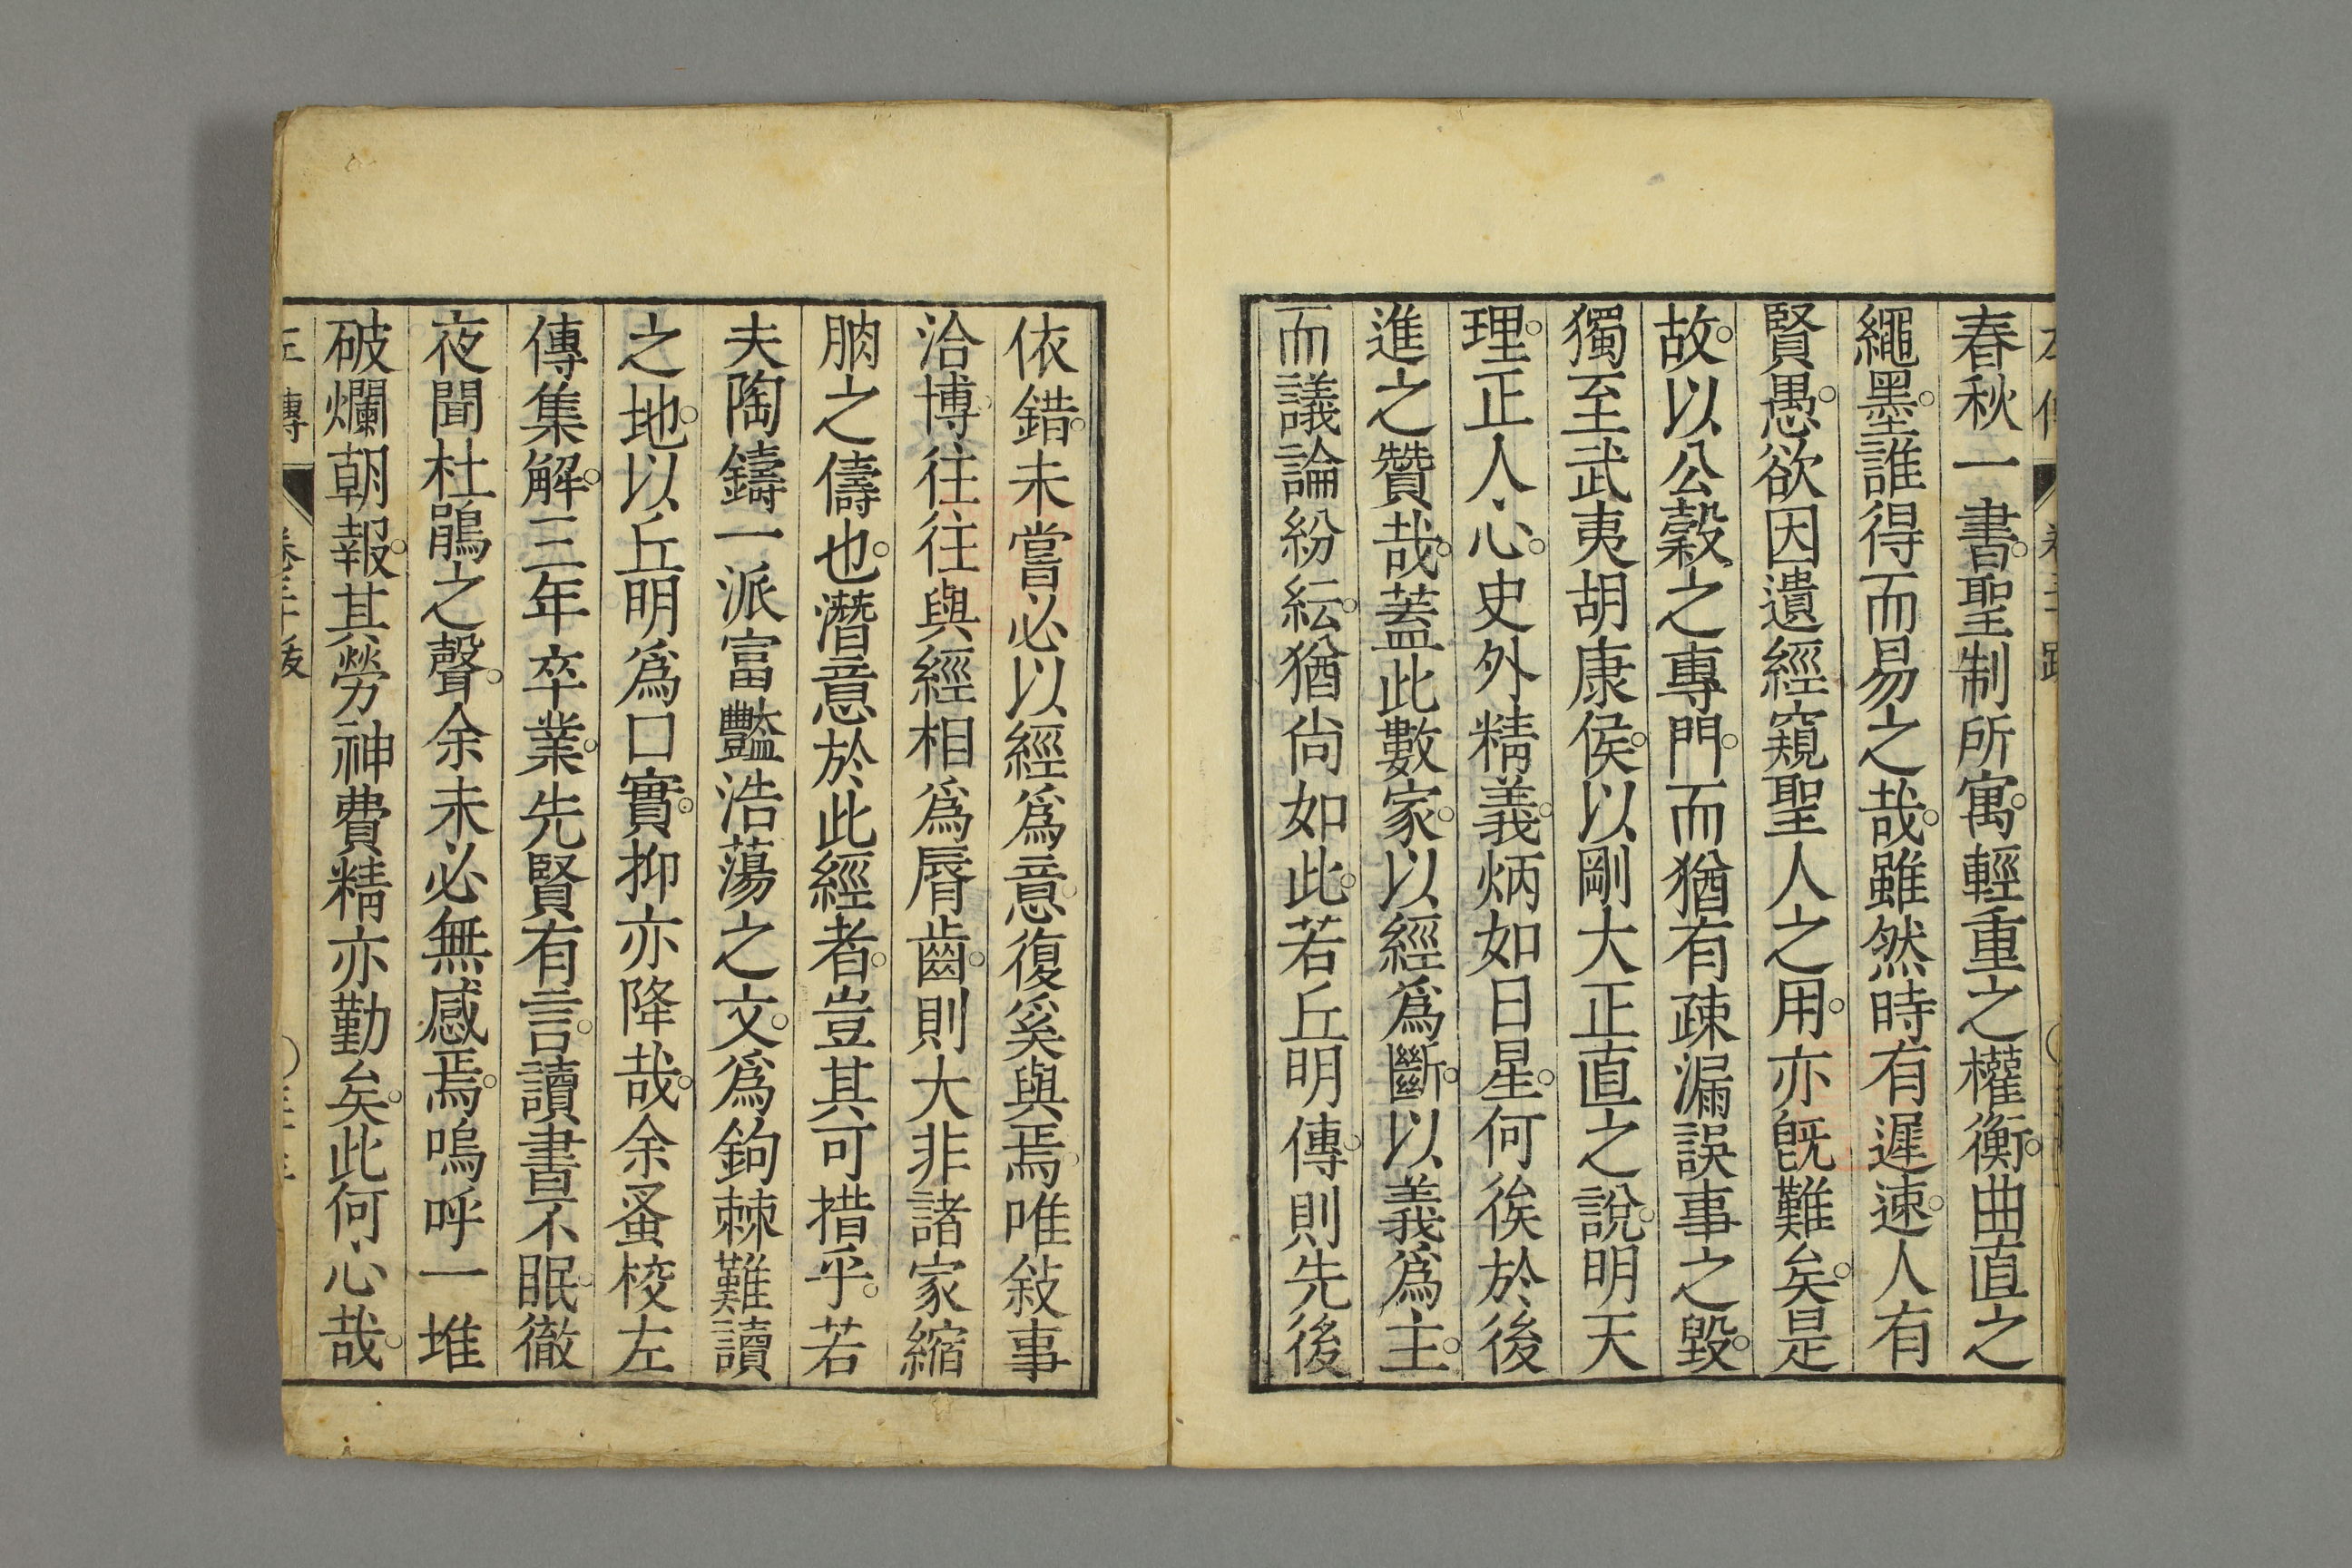 春秋一書。聖制所寓。輕重之權衡。曲直之
繩墨。誰得而易之哉。雖然時有遲速。人有
賢愚。欲因遺經窺聖人之用。亦旣難矣。是
故。以公穀之專門。而猶有疎漏誤事之毀。
獨至武夷胡康侯。以剛大正直之說。明天
理。正人心。史外精義。炳如日星。何俟於後
進之贊哉。蓋此數家。以經爲斷。以義爲主。
而議論紛紜。猶尙如此。若丘明傳。則先後
依錯。未嘗必以經爲意。復奚與焉。唯敍事
洽博。往往與經相爲脣齒。則大非諸家縮
朒之儔也。潛意於此經者。豈其可措乎。若
夫陶鑄一派富豔浩蕩之文。爲鉤棘難讀
之地。以丘明爲口實。抑亦降哉。余蚤校左
傳集解。三年卒業。先賢有言。讀書不眠。徹
夜聞杜鵑之聲。余未必無感焉。嗚呼一堆
破爛朝報。其勞神費精亦勤矣。此何心哉。
左傳